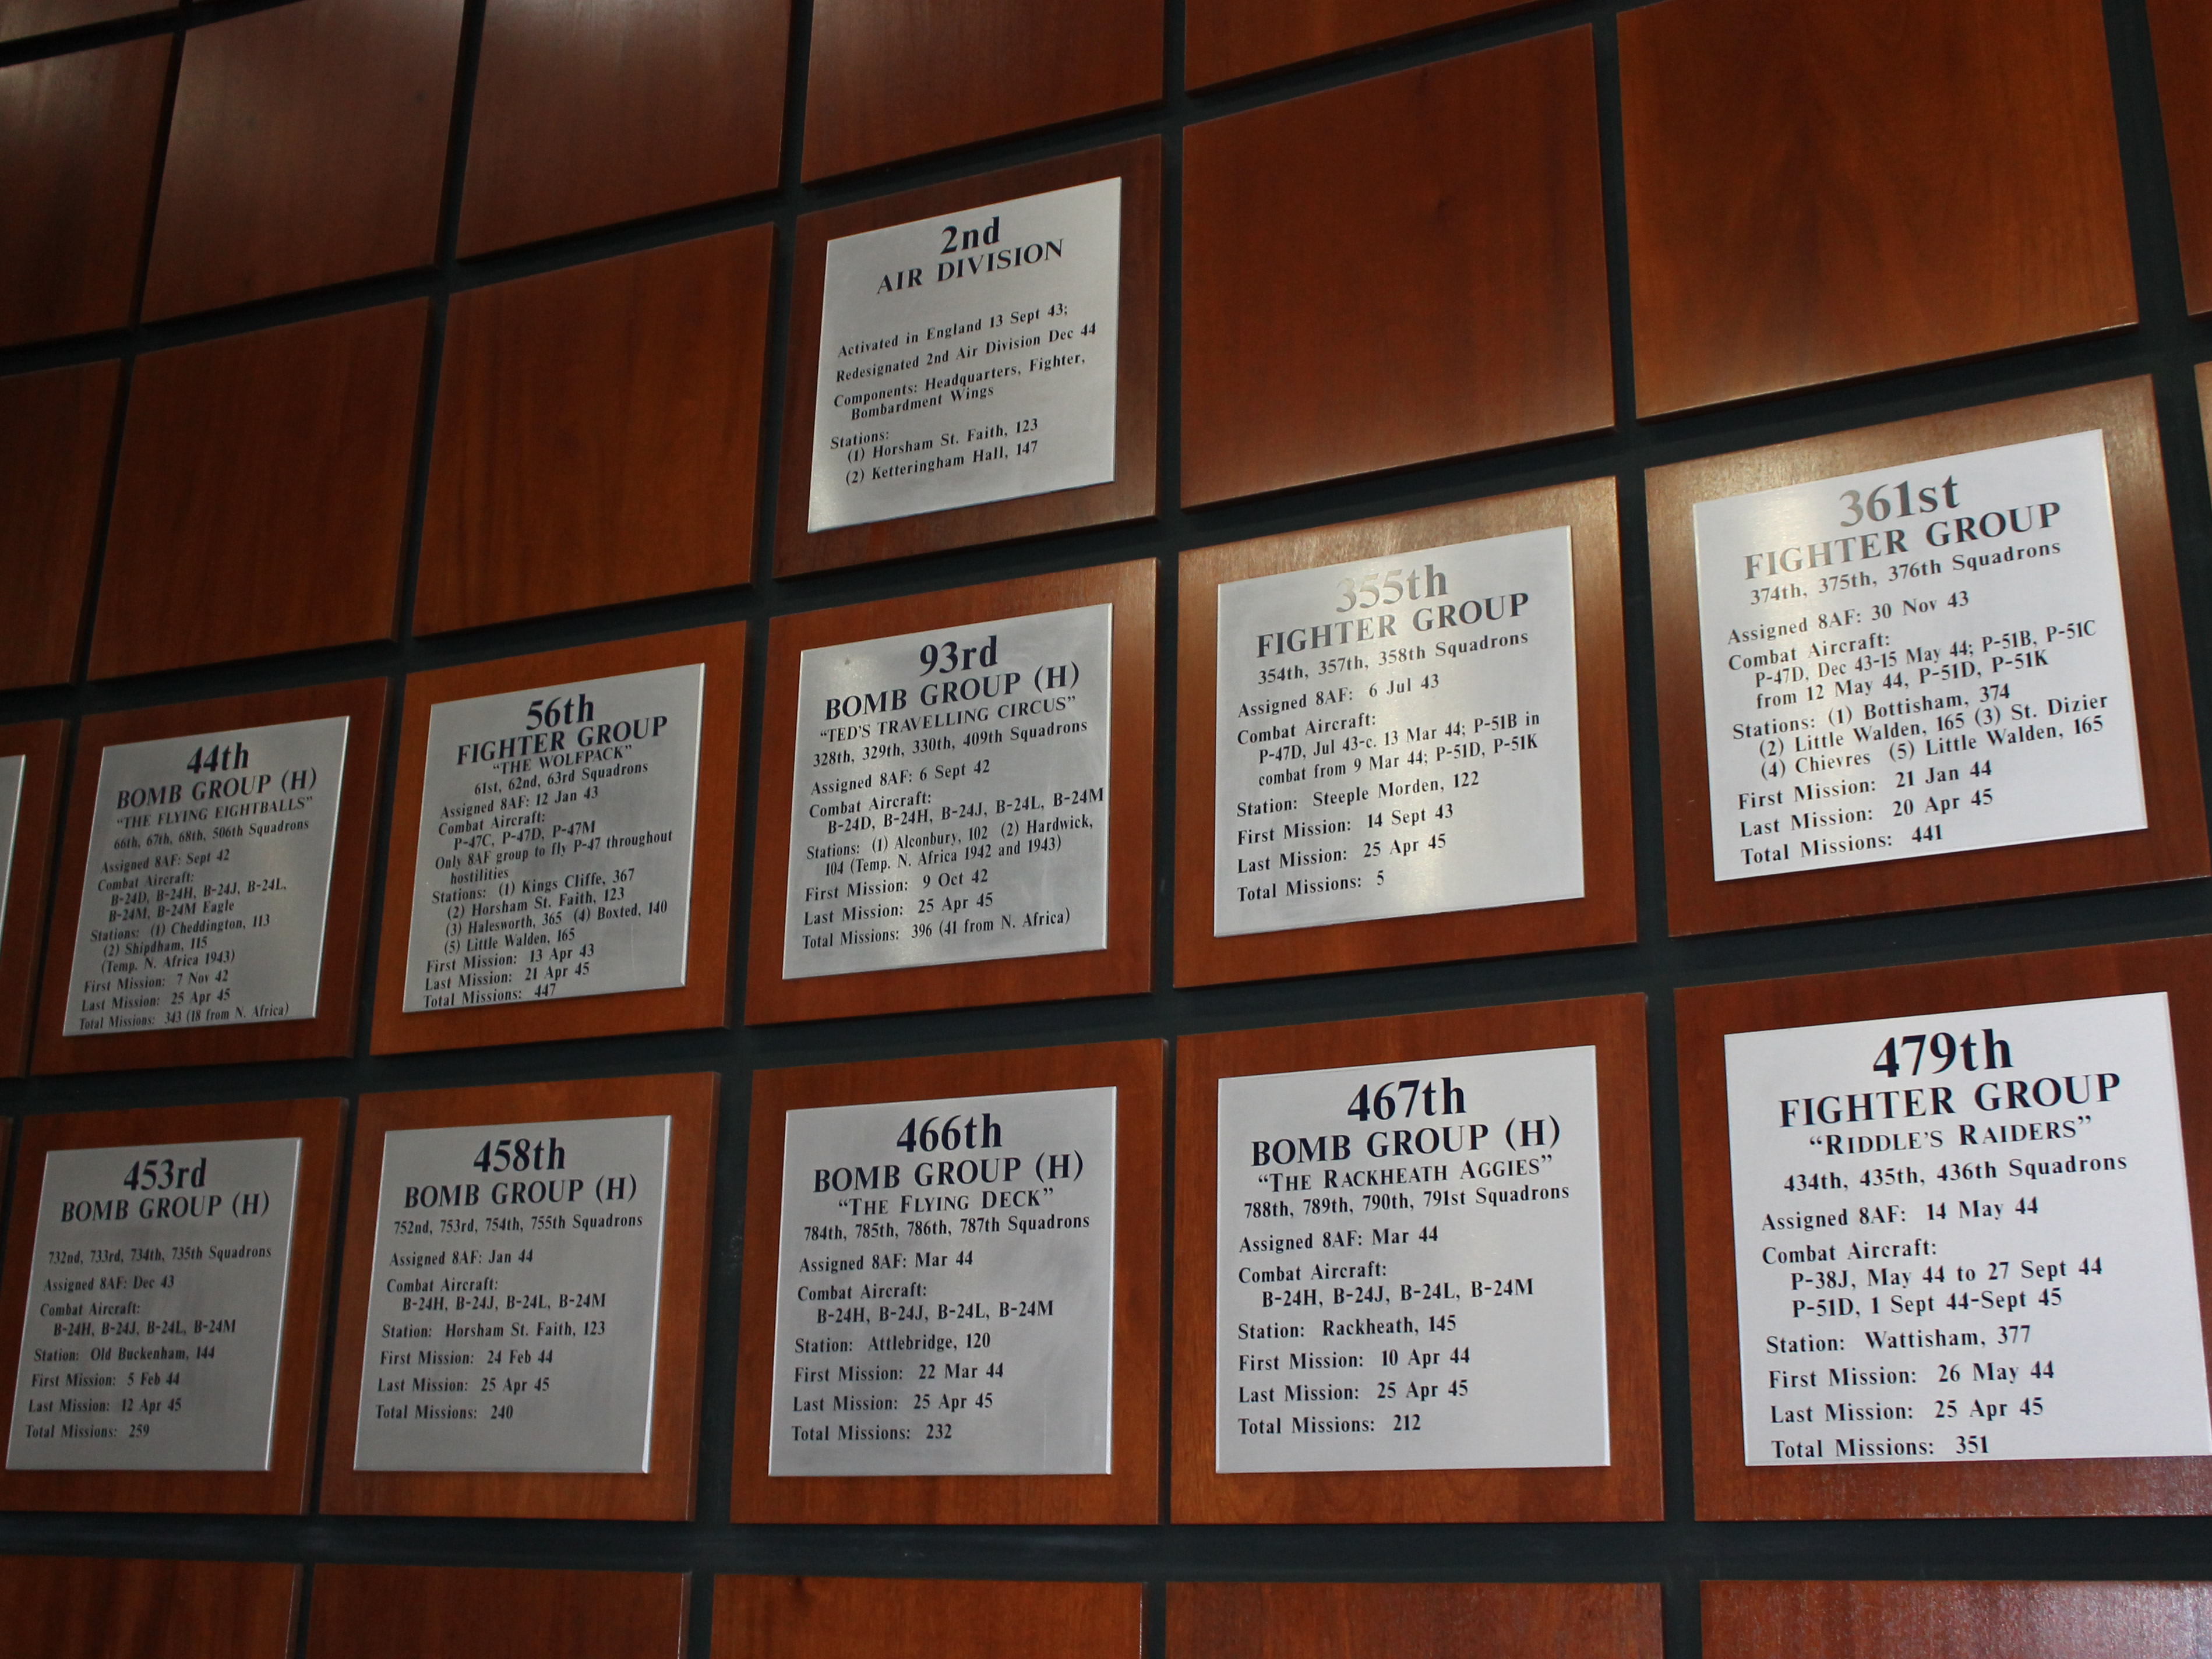 2nd
AIR DIVISION
Activated in England 13 Sept 43;
Redesignated 2nd Air Division Dec 44
Components: Headquarters, Fighter,
Bombardment Wings
Stations:
(1) Horsham St. Faith, 123
(2) Ketteringham Hall, 147
44th
BOMB GROUP (H)
"THE FLYING EIGHTBALLS"
66th, 67th, 68th, 506th Squadrons
Assigned 8AF: Sept 42
Combat Aircraft:
B-24D, B-24H, B-24J, B-24L,
B-24M, B-24M Eagle
Stations: (1) Cheddington, 113
(2) Shipdham, 115
(Temp. N. Africa 1943)
First Mission: 7 Nov 42
Last Mission: 25 Apr 45
Total Missions: 343 (18 from N. Africa)
56th
FIGHTER GROUP
"THE WOLFPACK"
61st, 62nd, 63rd Squadrons
Assigned 8AF: 12 Jan 43
Combat Aircraft:
P-47C, P-47D, P-47M
Only 8AF group to fly P-47 throughout
hostilities
Stations: (1) Kings Cliffe, 367
(2) Horsham St. Faith, 123
(3) Halesworth, 365 (4) Boxted, 140
(5) Little Walden, 165
First Mission: 13 Apr 43
Last Mission: 21 Apr 45
Total Missions: 447
93rd
BOMB GROUP (H)
"TED'S TRAVELLING CIRCUS"
328th, 329th, 330th, 409th Squadrons
Assigned 8AF: 6 Sept 42
Combat Aircraft:
B-24D, B-24H, B-24J, B-24L, B-24M
Stations: (1) Alconbury, 102 (2) Hardwick,
104 (Temp. N. Africa 1942 and 1943)
First Mission: 9 Oct 42
Last Mission: 25 Apr 45
Total Missions: 396 (41 from N. Africa)
355th
FIGHTER GROUP
354th, 357th, 358th Squadrons
Assigned 8AF: 6 Jul 43
Combat Aircraft:
P-47D, Jul 43-c. 13 Mar 44; P-51B in
combat from 9 Mar 44; P-51D, P-51K
Station: Steeple Morden, 122
First Mission: 14 Sept 43
Last Mission: 25 Apr 45
Total Missions: 5
361st
FIGHTER GROUP
374th, 375th, 376th Squadrons
Assigned 8AF: 30 Nov 43
Combat Aircraft:
P-47D, Dec 43-15 May 44; P-51B, P-51C
from 12 May 44, P-51D, P-51K
Stations: (1) Bottisham, 374
(2) Little Walden, 165 (3) St. Dizier
(4) Chievres (5) Little Walden, 165
First Mission: 21 Jan 44
Last Mission: 20 Apr 45
Total Missions: 441
453rd
BOMB GROUP (H)
732nd, 733rd, 734th, 735th Squadrons
Assigned 8AF: Dec 43
Combat Aircraft:
B-24H, B-24J, B-24L, B-24M
Station: Old Buckenham, 144
First Mission: 5 Feb 44
Last Mission: 12 Apr 45
Total Missions: 259
458th
BOMB GROUP (H)
752nd, 753rd, 754th, 755th Squadrons
Assigned 8AF: Jan 44
Combat Aircraft:
B-24H, B-24J, B-24L, B-24M
Station: Horsham St. Faith, 123
First Mission: 24 Feb 44
Last Mission: 25 Apr 45
Total Missions: 240
466th
BOMB GROUP (H)
"THE FLYING DECK"
784th, 785th, 786th, 787th Squadrons
Assigned 8AF: Mar 44
Combat Aircraft:
B-24H, B-24J, B-24L, B-24M
Station: Attlebridge, 120
First Mission: 22 Mar 44
Last Mission: 25 Apr 45
Total Missions: 232
467th
BOMB GROUP (H)
"THE RACKHEATH AGGIES"
788th, 789th, 790th, 791st Squadrons
Assigned 8AF: Mar 44
Combat Aircraft:
B-24H, B-24J, B-24L, B-24M
Station: Rackheath, 145
First Mission: 10 Apr 44
Last Mission: 25 Apr 45
Total Missions: 212
479th
FIGHTER GROUP
"RIDDLE'S RAIDERS"
434th, 435th, 436th Squadrons
Assigned 8AF: 14 May 44
Combat Aircraft:
P-38J, May 44 to 27 Sept 44
P-51D, 1 Sept 44-Sept 45
Station: Wattisham, 377
First Mission: 26 May 44
Last Mission: 25 Apr 45
Total Missions: 351